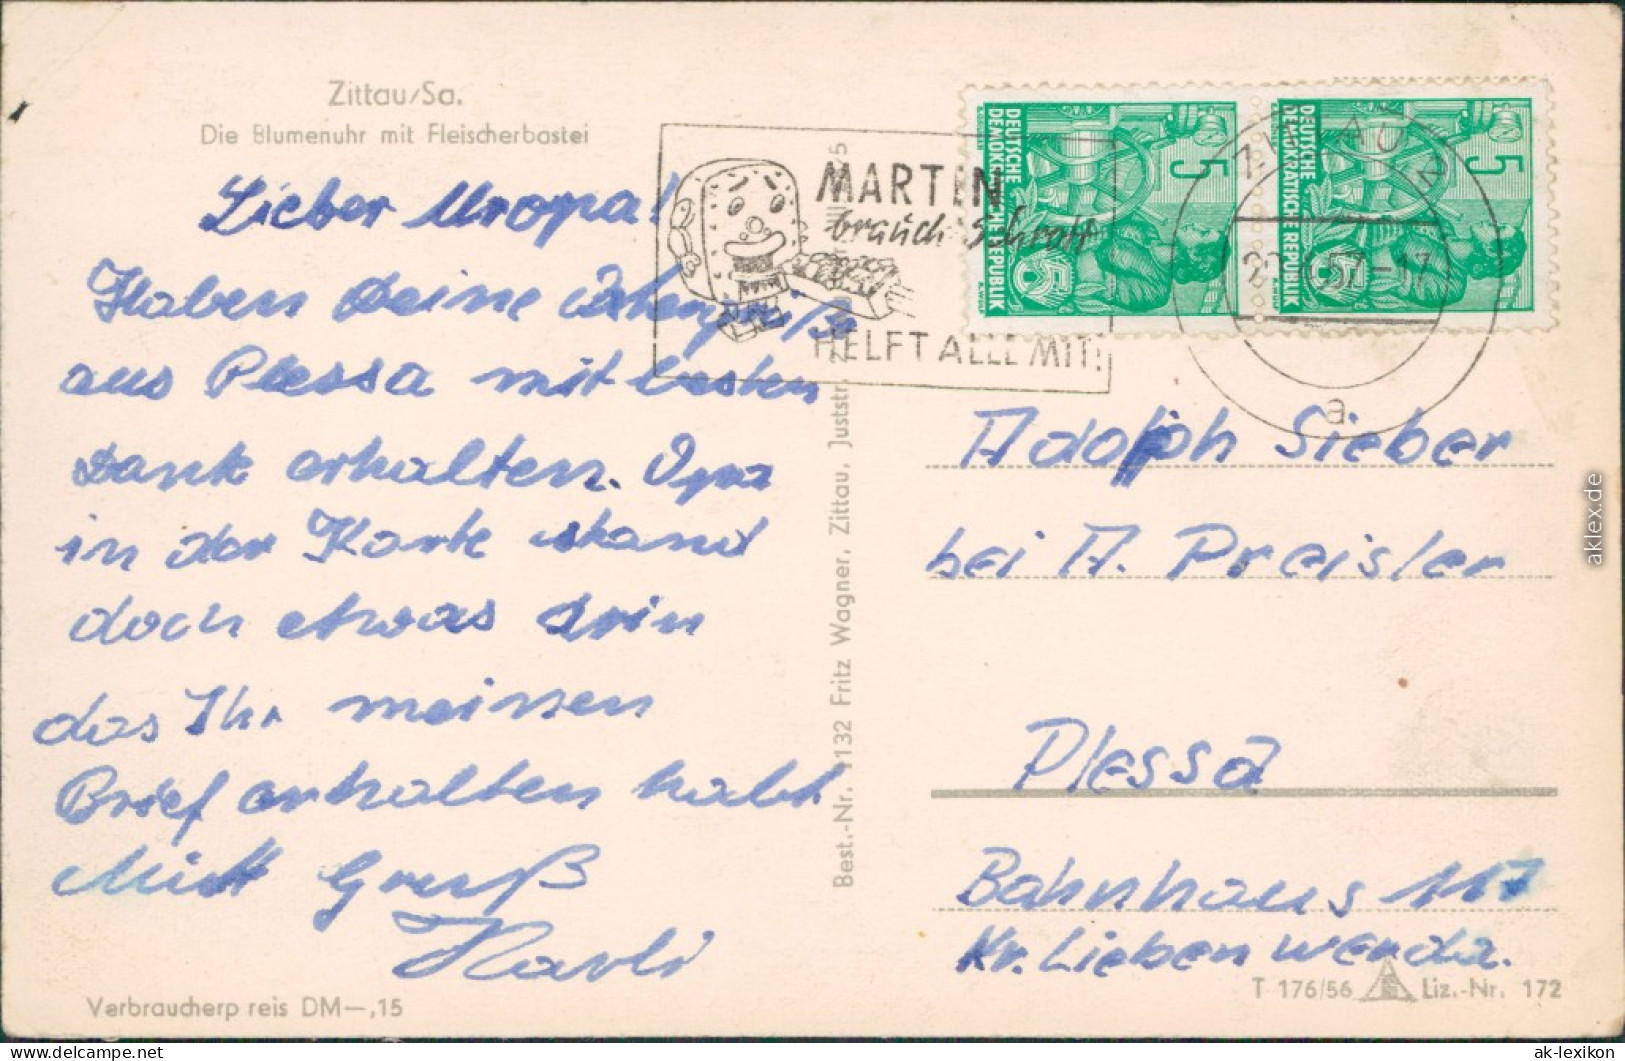 Zittau/Sa.
Die Blumenuhr mit Fleischerbastei
Lieber Uropa!
Haben Deine
aus Plessa mit besten
Dank erhalten. Opa
in der Karte stand
doch etwas drin
das Ihr meinen
Brief erhalten habt.
Mitt Gruß
Karli
Verbraucherpreis DM—,15
Best.-Nr. 1132 Fritz Wagner, Zittau, Juststr.
MARTIN
braucht Schrott
HELFT ALLE MIT!
DEUTSCHE
DEMOKRATISCHE REPUBLIK
5
DEUTSCHE
DEMOKRATISCHE REPUBLIK
5
57-17
a
Adolph Sieber
bei A. Preisler
Plessa
Bahnhaus 117
Kr. Liebenwerda.
T 176/56 Liz.-Nr. 172
aklex.de
delcampe.net
ak-lexikon